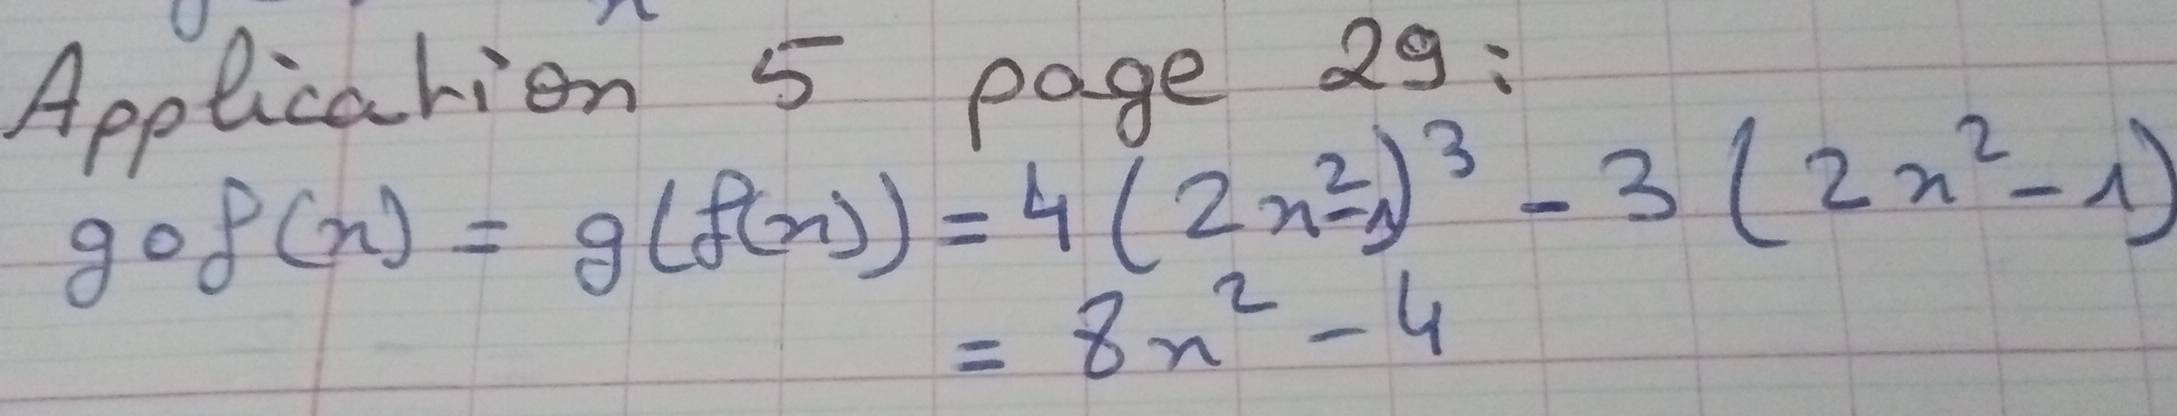 Application 5 page 29:
gof(x) = g(f(x)) = 4(2x²-1)³ - 3(2x²-1)
= 8x² - 4